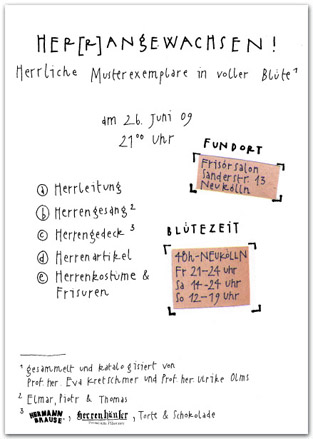 HER[R]ANGEWACHSEN!
Herrliche Musterexemplare in voller Blüte¹
am 26. Juni 09
21⁰⁰ Uhr
FUNDORT
Frisörsalon
Sanderstr. 13
Neukölln
ⓐ Herrleitung
ⓑ Herrengesang²
ⓒ Herrengedeck³
ⓓ Herrenartikel
ⓔ Herrenkostüme &
Frisuren
BLÜTEZEIT
48h-NEUKÖLLN
Fr 21-24 Uhr
Sa 14-24 Uhr
So 12-19 Uhr
¹ gesammelt und katalogisiert von
Prof. her. Eva Kretschmer und Prof. her. Ulrike Olms
² Elmar, Piotr & Thomas
³ HERMANN BRAUSE, Herrenhäuser, Torte & Schokolade